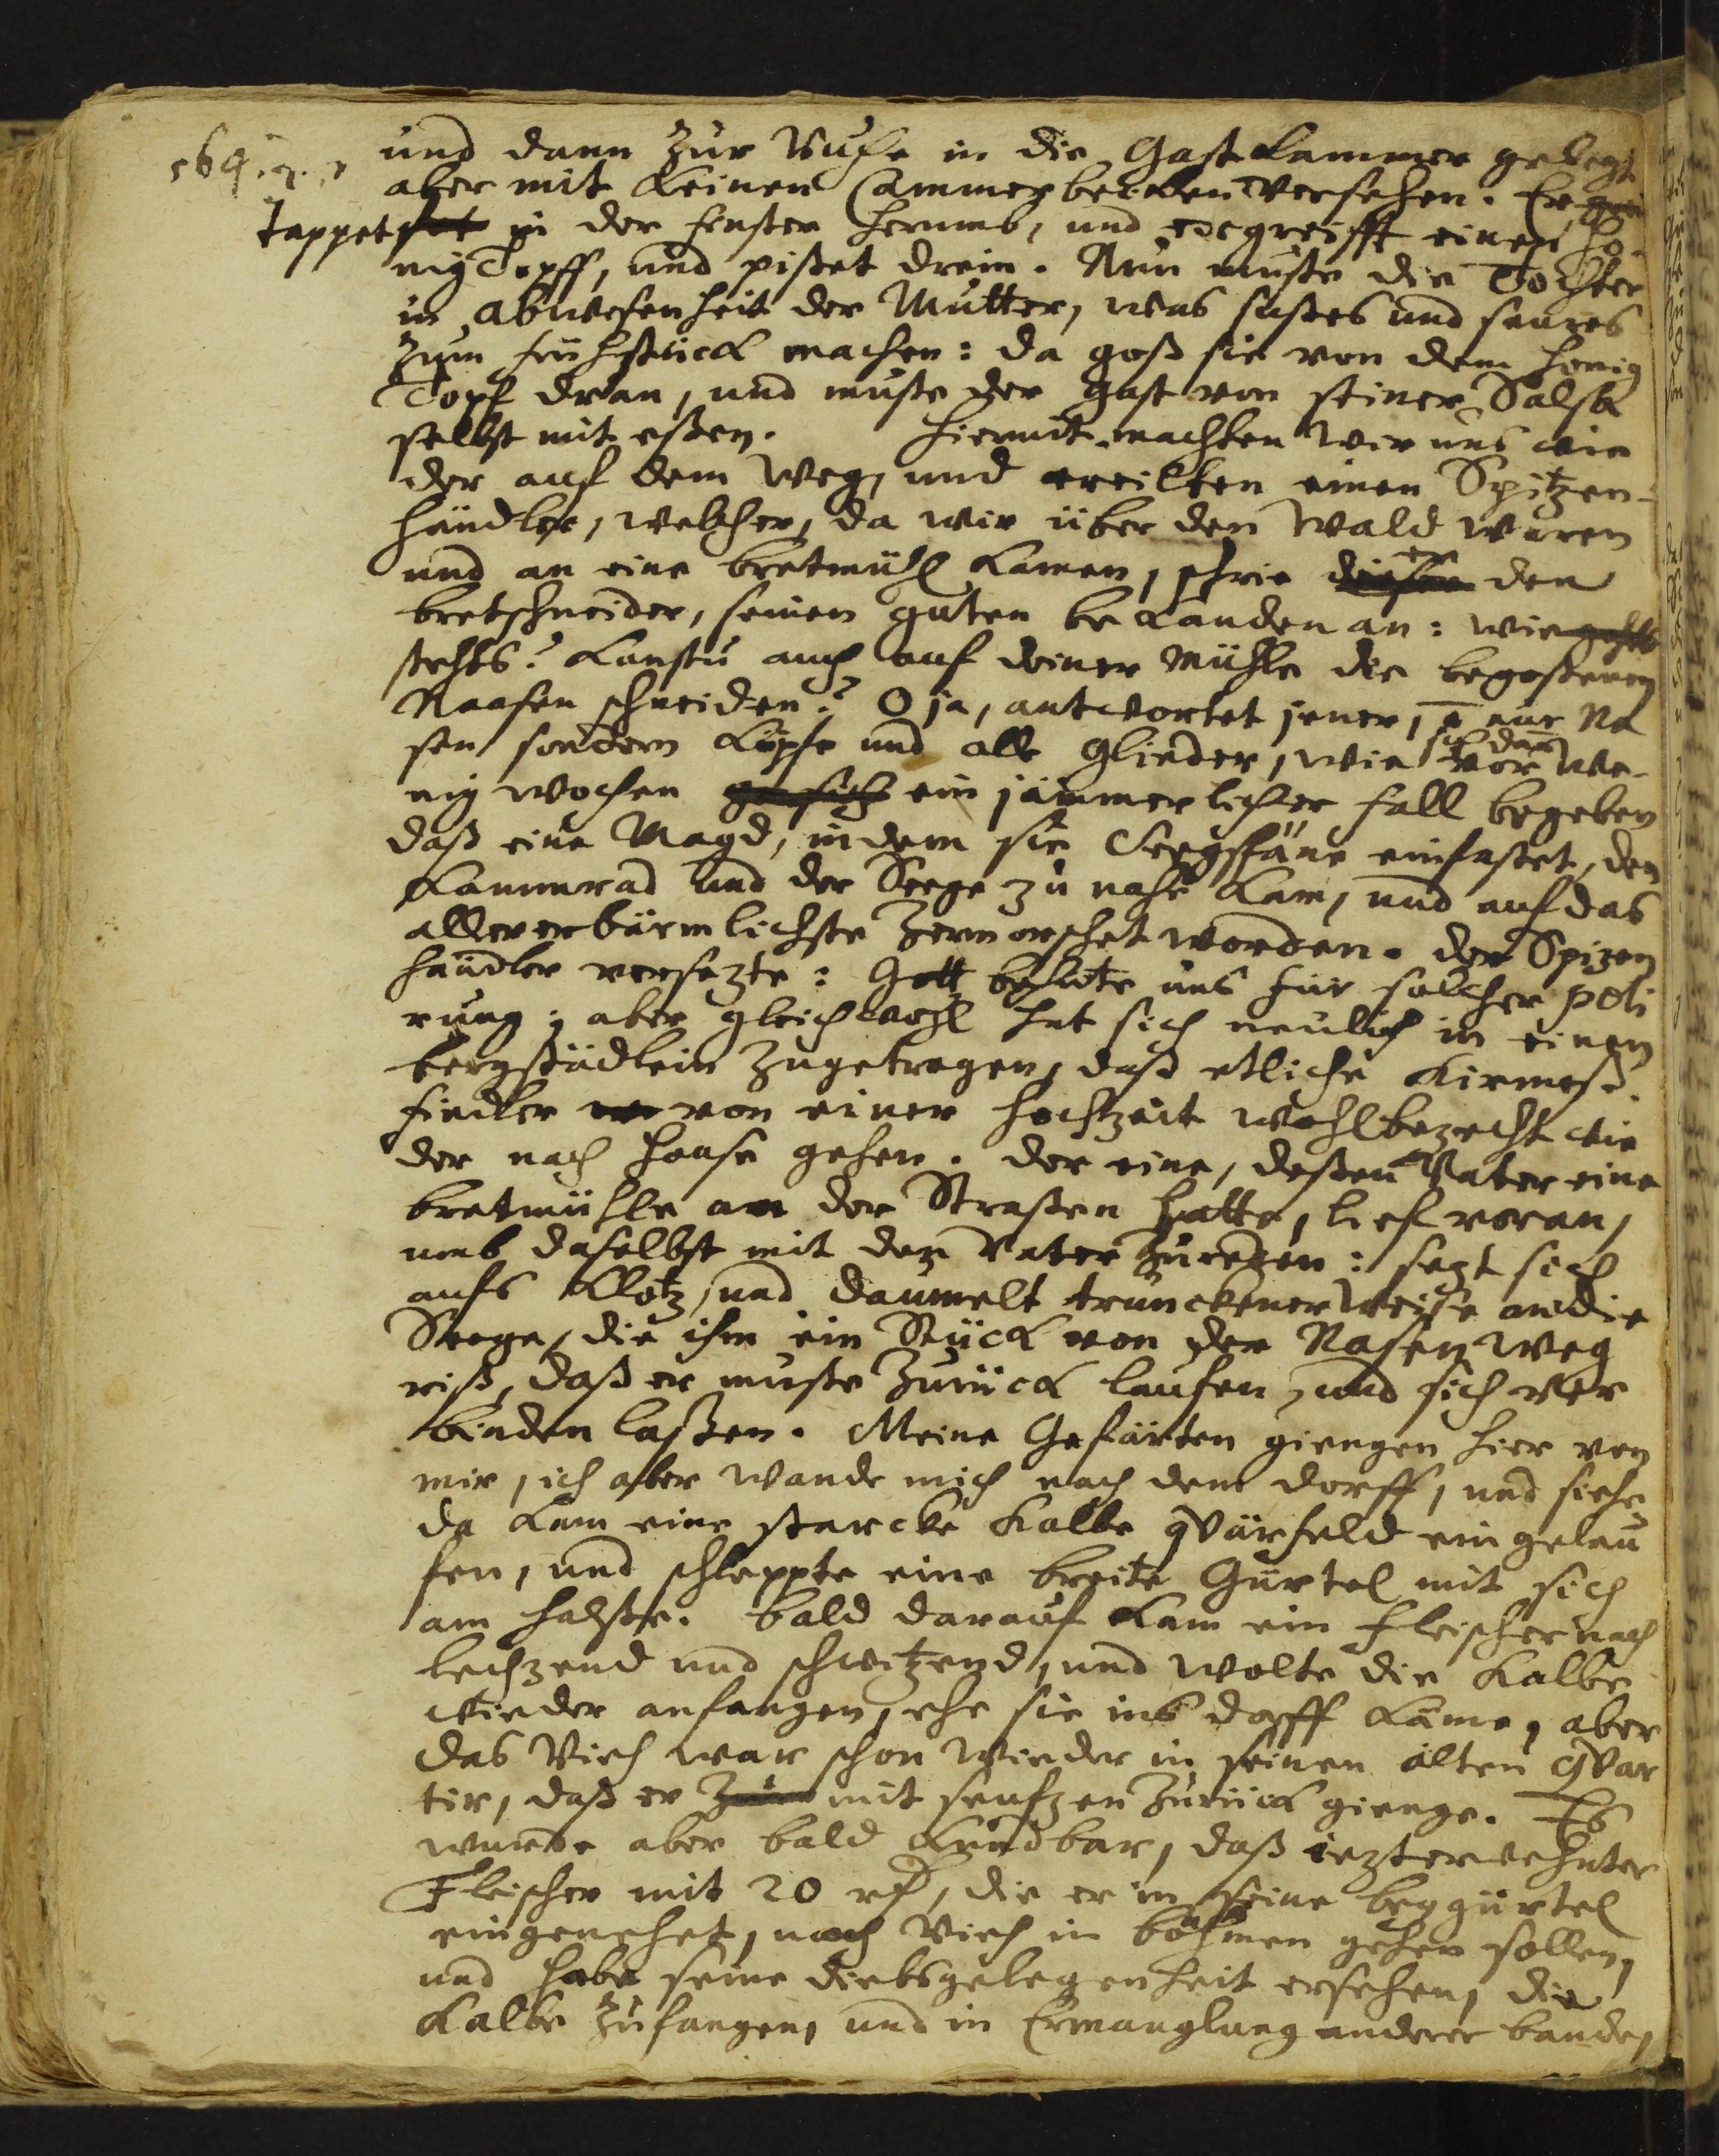 und dann zur Ruhe in die Gastkammer gelegt
aber mit keinen Cammerbecken versehen. Er
tappet in der finster herumb, und ergreifft einen ho-
nig Topff, und pißet drein. Nun muste die Tochter
in abwesenheit der Mutter, was süßes und saures
zum frühstück machen: da goß sie von dem honig
Topf dran, und muste der Gast von seiner Salse
selbst mit eßen. Hiermit machten wir uns wie
der auf dem Weg, und ereilten einen Spitzen-
händler, welcher, da wir über den Wald waren
und an eine bretmühl kamen, schrie er den
bretschneider, seinen guten bekanden an: wie gehts
stehts? kanstu auch auf deiner Mühle die begoßenen
Naasen schneiden? O ja, antwortet jener, nur Na
sen sondern köpfe und alle glieder, wie sich dan vor we-
nig wochen ein jämmerlicher fall begeben
daß eine Magd, indem sie Seegspäne einfaßet, dem
kammrad und der Seege zu nahe kam, und auf das
allererbärmlichste zermorschet worden. der Spizen
händler versezte: Gott behüte uns für solcher poli
rung; aber gleichwohl hat sich neulich in einem
bergstädlein zugetragen, daß etliche Kirmeß-
fiedler von einer hochzeit wohlbezecht wie
der nach hause gehen. der eine, deßen Vater eine
bretmühle an der Straßen hatte, lief voran,
umb daselbst mit den Vater zureden: sezt sich
aufs klotz, und daumelt trunckener weise an die
Seege, die ihm ein Stück von der Nasen weg
riß, daß er muste zurück laufen, und sich ver
binden laßen. Meine Gefärten giengen hier von
mir, ich aber wande mich nach dem dorff, und siehe
da kam eine starcke Kalbe qvärfeld ein gelau
fen, und schleppte eine breite Gürtel mit sich
am halße. bald darauf kam ein Fleischer nach
lechzend und schwitzend, und wolte die Kalbe
wieder anfangen, ehe sie ins dorff käme, aber
das Vieh war schon wieder in seinen alten qvar
tir, daß er mit seufzen zurück gienge. Es
wurde aber bald kundbar, daß iezterwehnter
Fleischer mit 20 rh, die er in seine beygürtel
eingenehet, nach Vieh in böhmen gehen sollen,
und habe seine diebsgelegenheit ersehen, die
Kalbe zufangen, und in Ermanglung anderer bande,